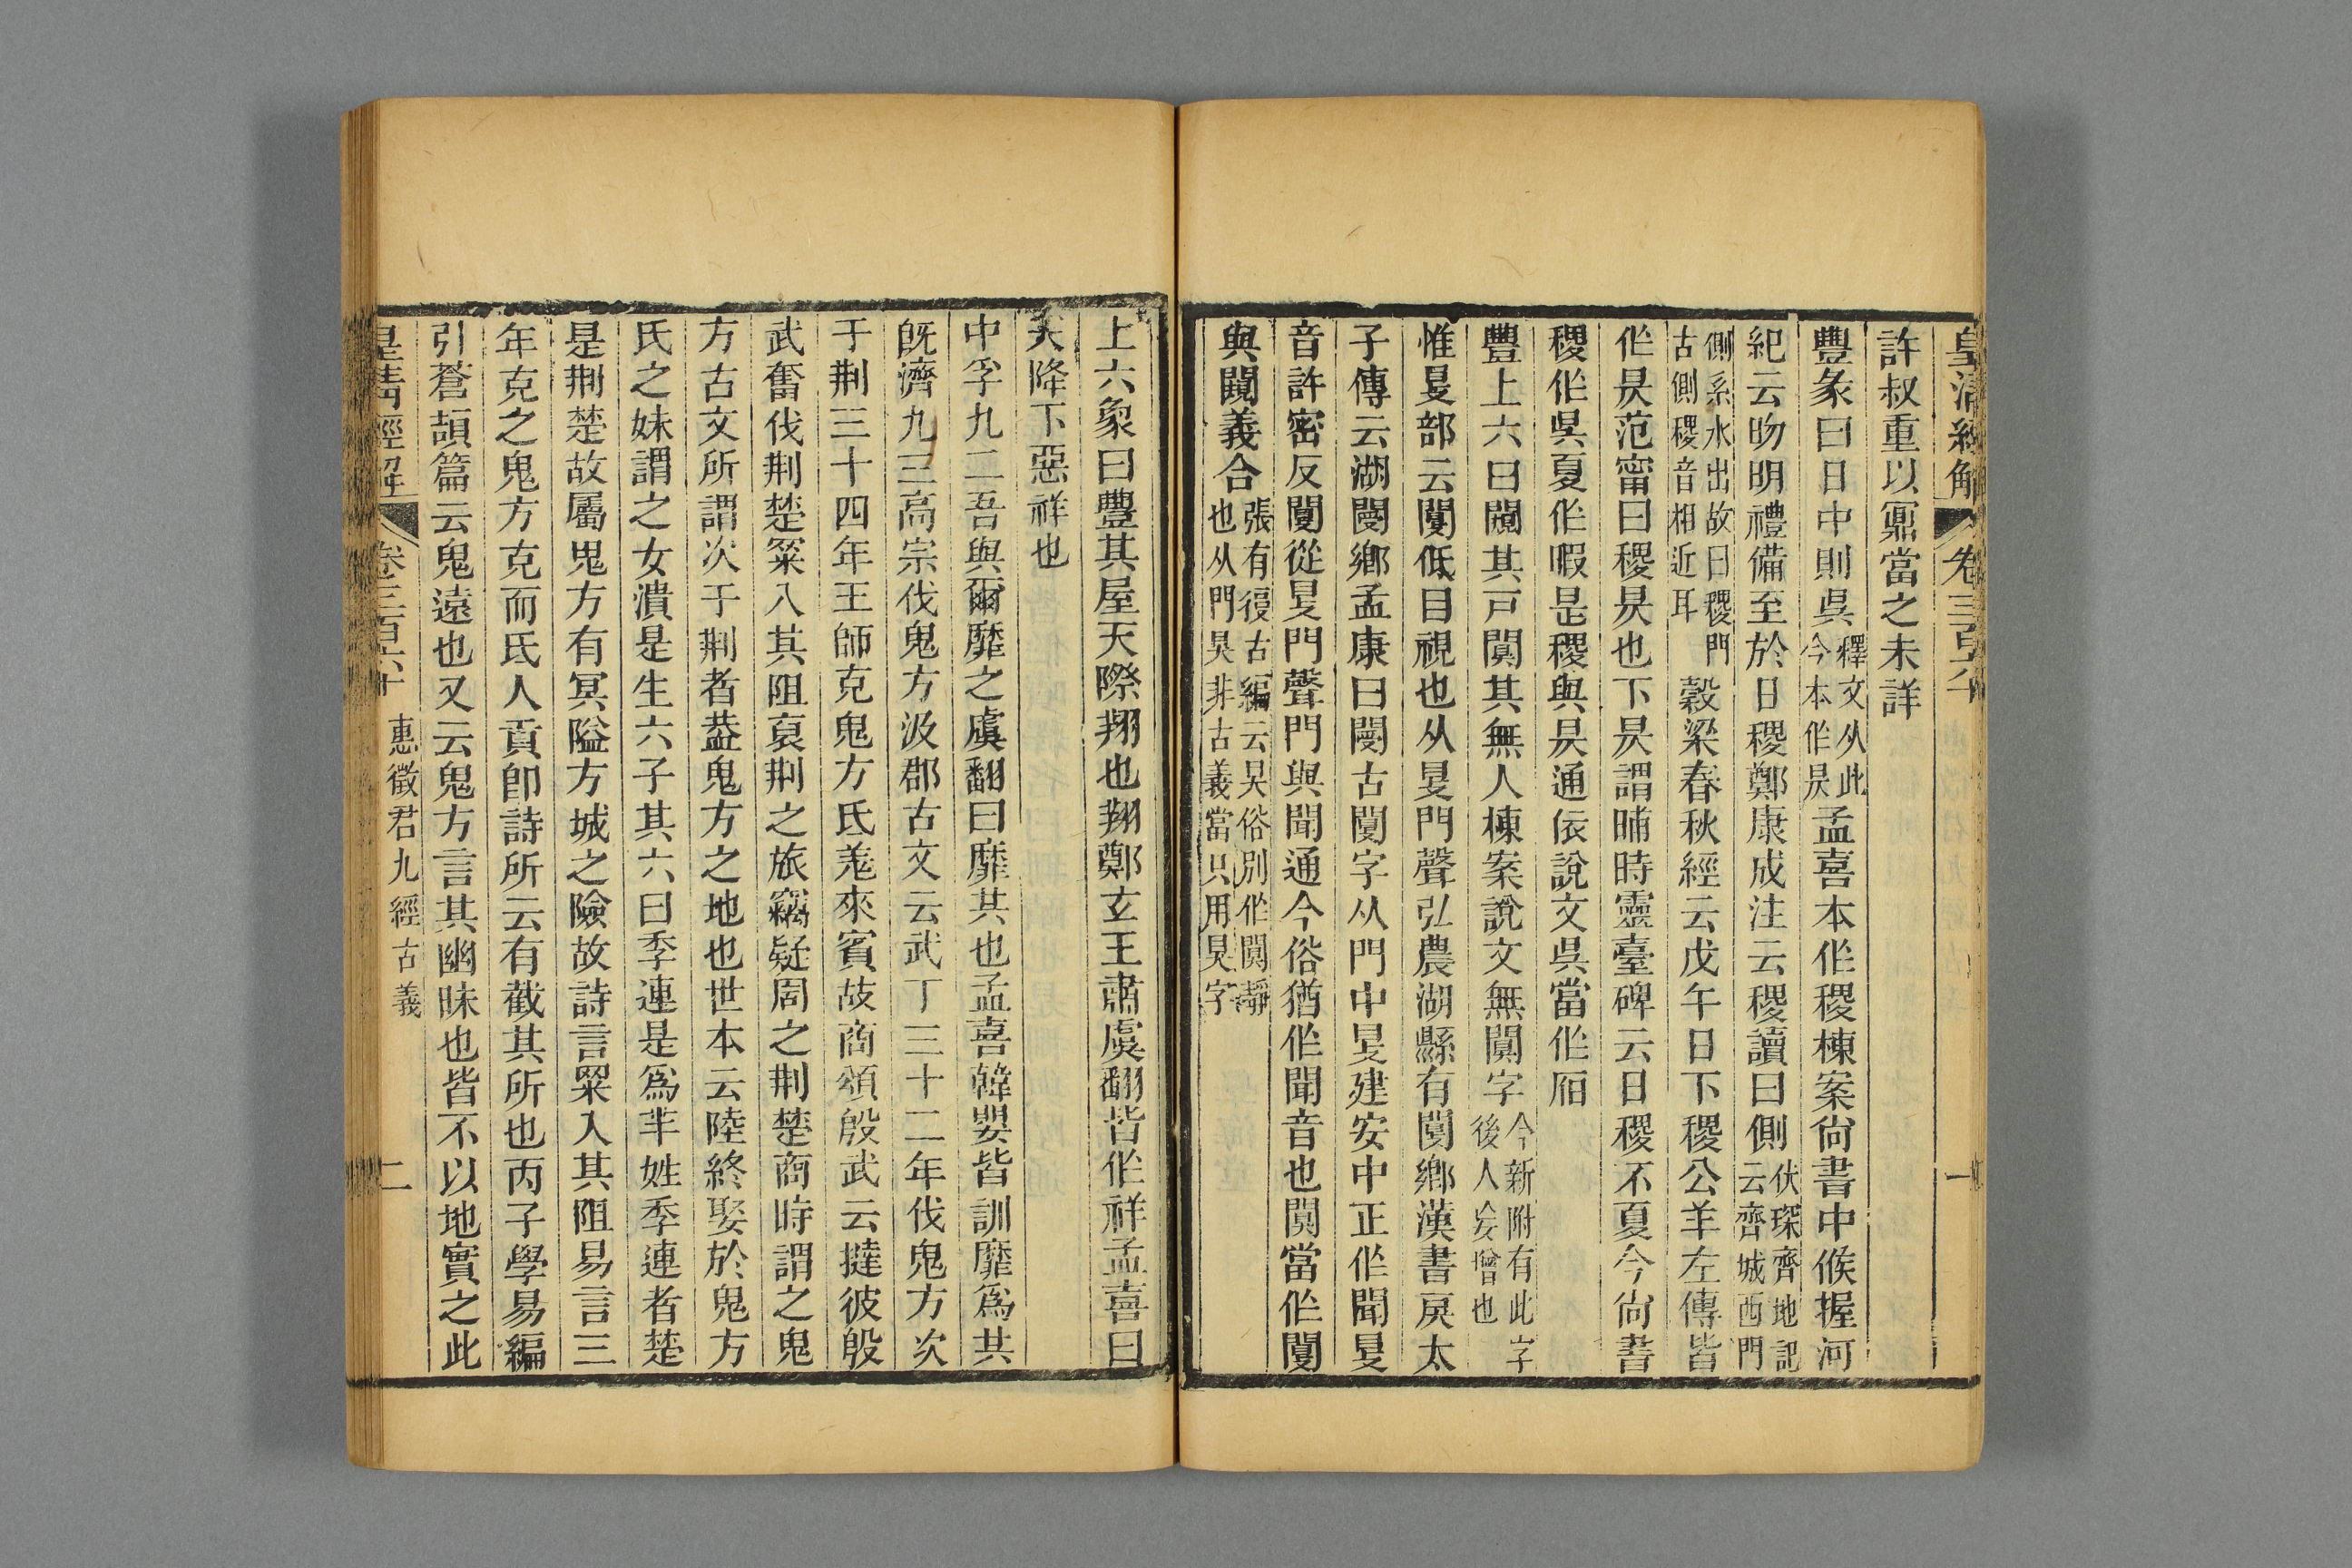 皇清經解 卷三百六十 一
許叔重以鼏當之未詳
豐彖曰日中則吳釋文从此今本作昃孟喜本作稷棟案尙書中候握河
紀云昒明禮備至於日稷鄭康成注云稷讀曰側伏琛齊地記云齊城西門
側系水出故曰稷門古側稷音相近耳穀梁春秋經云戊午日下稷公羊左傳皆
作昃范甯曰稷昃也下昃謂晡時靈臺碑云日稷不夏今尙書
稷作吳夏作暇是稷與昃通依說文吳當作𣅔
豐上六曰闚其戸闃其無人棟案說文無闃字今新附有此字後人妄增也
惟𥄎部云闅低目視也从𥄎門聲弘農湖縣有闅鄉漢書戾太
子傳云湖閿鄉孟康曰閿古闅字从門中𥄎建安中正作聞𥄎
音許密反闅從𥄎門聲門與聞通今俗猶作聞音也闃當作闅
與闚義合張有復古編云狊俗別作闃靜也从門狊非古義當只用狊字
上六象曰豐其屋天際翔也翔鄭玄王肅虞翻皆作祥孟喜曰
天降下惡祥也
中孚九二吾與爾靡之虞翻曰靡共也孟喜韓嬰皆訓靡爲共
旣濟九三高宗伐鬼方汲郡古文云武丁三十二年伐鬼方次
于荆三十四年王師克鬼方氐羌來賓故商頌殷武云撻彼殷
武奮伐荆楚冞入其阻裒荆之旅竊疑周之荆楚商時謂之鬼
方古文所謂次于荆者葢鬼方之地也世本云陸終娶於鬼方
氏之妹謂之女潰是生六子其六曰季連是爲芈姓季連者楚
是荆楚故屬鬼方有冥隘方城之險故詩言冞入其阻易言三
年克之鬼方克而氐人貢卽詩所云有截其所也丙子學易編
引蒼頡篇云鬼遠也又云鬼方言其幽昧也皆不以地實之此
皇清經解 卷三百六十 惠徵君九經古義 二